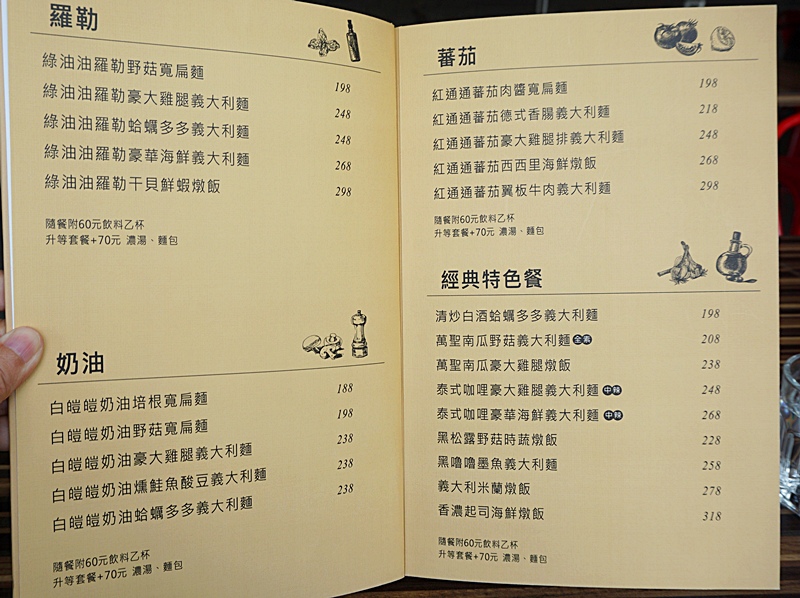 羅勒
綠油油羅勒野菇寬扁麵 198
綠油油羅勒豪大雞腿義大利麵 248
綠油油羅勒蛤蠣多多義大利麵 248
綠油油羅勒豪華海鮮義大利麵 268
綠油油羅勒干貝鮮蝦燉飯 298
隨餐附60元飲料乙杯
升等套餐+70元 濃湯、麵包
奶油
白皚皚奶油培根寬扁麵 188
白皚皚奶油野菇寬扁麵 198
白皚皚奶油豪大雞腿義大利麵 238
白皚皚奶油燻鮭魚酸豆義大利麵 238
白皚皚奶油蛤蠣多多義大利麵 238
隨餐附60元飲料乙杯
升等套餐+70元 濃湯、麵包
蕃茄
紅通通蕃茄肉醬寬扁麵 198
紅通通蕃茄德式香腸義大利麵 218
紅通通蕃茄豪大雞腿排義大利麵 248
紅通通蕃茄西西里海鮮燉飯 268
紅通通蕃茄翼板牛肉義大利麵 298
隨餐附60元飲料乙杯
升等套餐+70元 濃湯、麵包
經典特色餐
清炒白酒蛤蠣多多義大利麵 198
萬聖南瓜野菇義大利麵 全素 208
萬聖南瓜豪大雞腿燉飯 238
泰式咖哩豪大雞腿義大利麵 中辣 248
泰式咖哩豪華海鮮義大利麵 中辣 268
黑松露野菇時蔬燉飯 228
黑嚕嚕墨魚義大利麵 258
義大利米蘭燉飯 278
香濃起司海鮮燉飯 318
隨餐附60元飲料乙杯
升等套餐+70元 濃湯、麵包